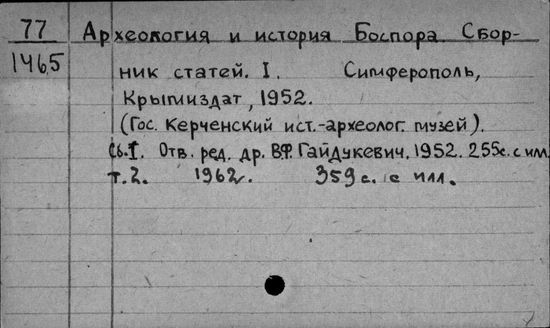 77 Археология и история Боспора. Сбор-
1465
ник статей. I. Симферополь,
Крымиздат, 1952.
(Гос. Керченский ист.-археолог. музей).
Сб.I. Отв. ред. др. В.Ф. Гайдукевич. 1952. 255с. с илл.
т.2. 1962. 359с. с илл.